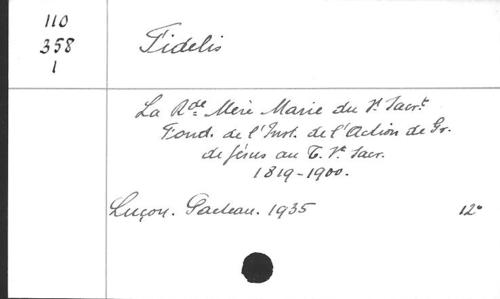 110
358
1
Fidelis
La Rde Mère Marie du St Sacrt
Fond. de l'Inst. de l'Action de Gr.
de Jésus au T. St Sacr.
1819-1900.
Luçon. Pacteau. 1935 12°